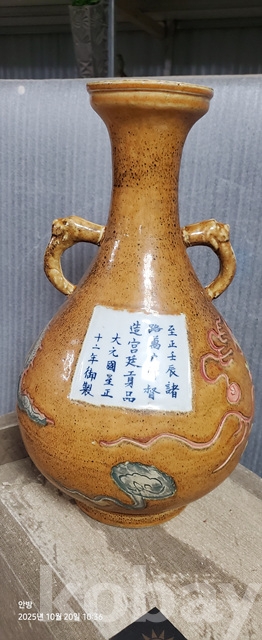 至正壬辰諸
路萬戶督
造宫廷貢品
大元國至正
十二年御製
안방
2025년 10월 20일 10:36
kobay